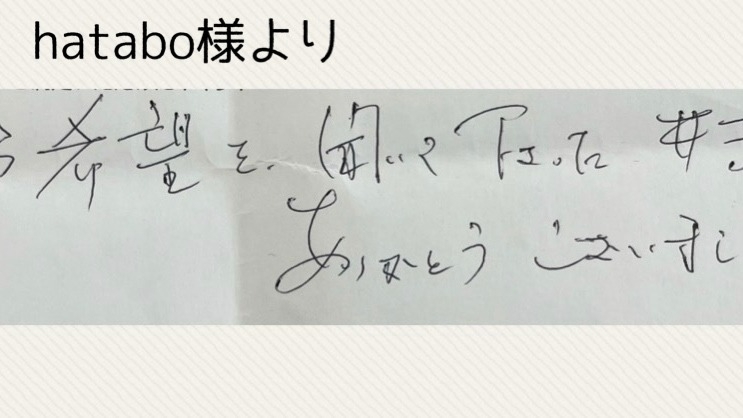 hatabo様より
希望を聞いて下さった
ありがとうございまし